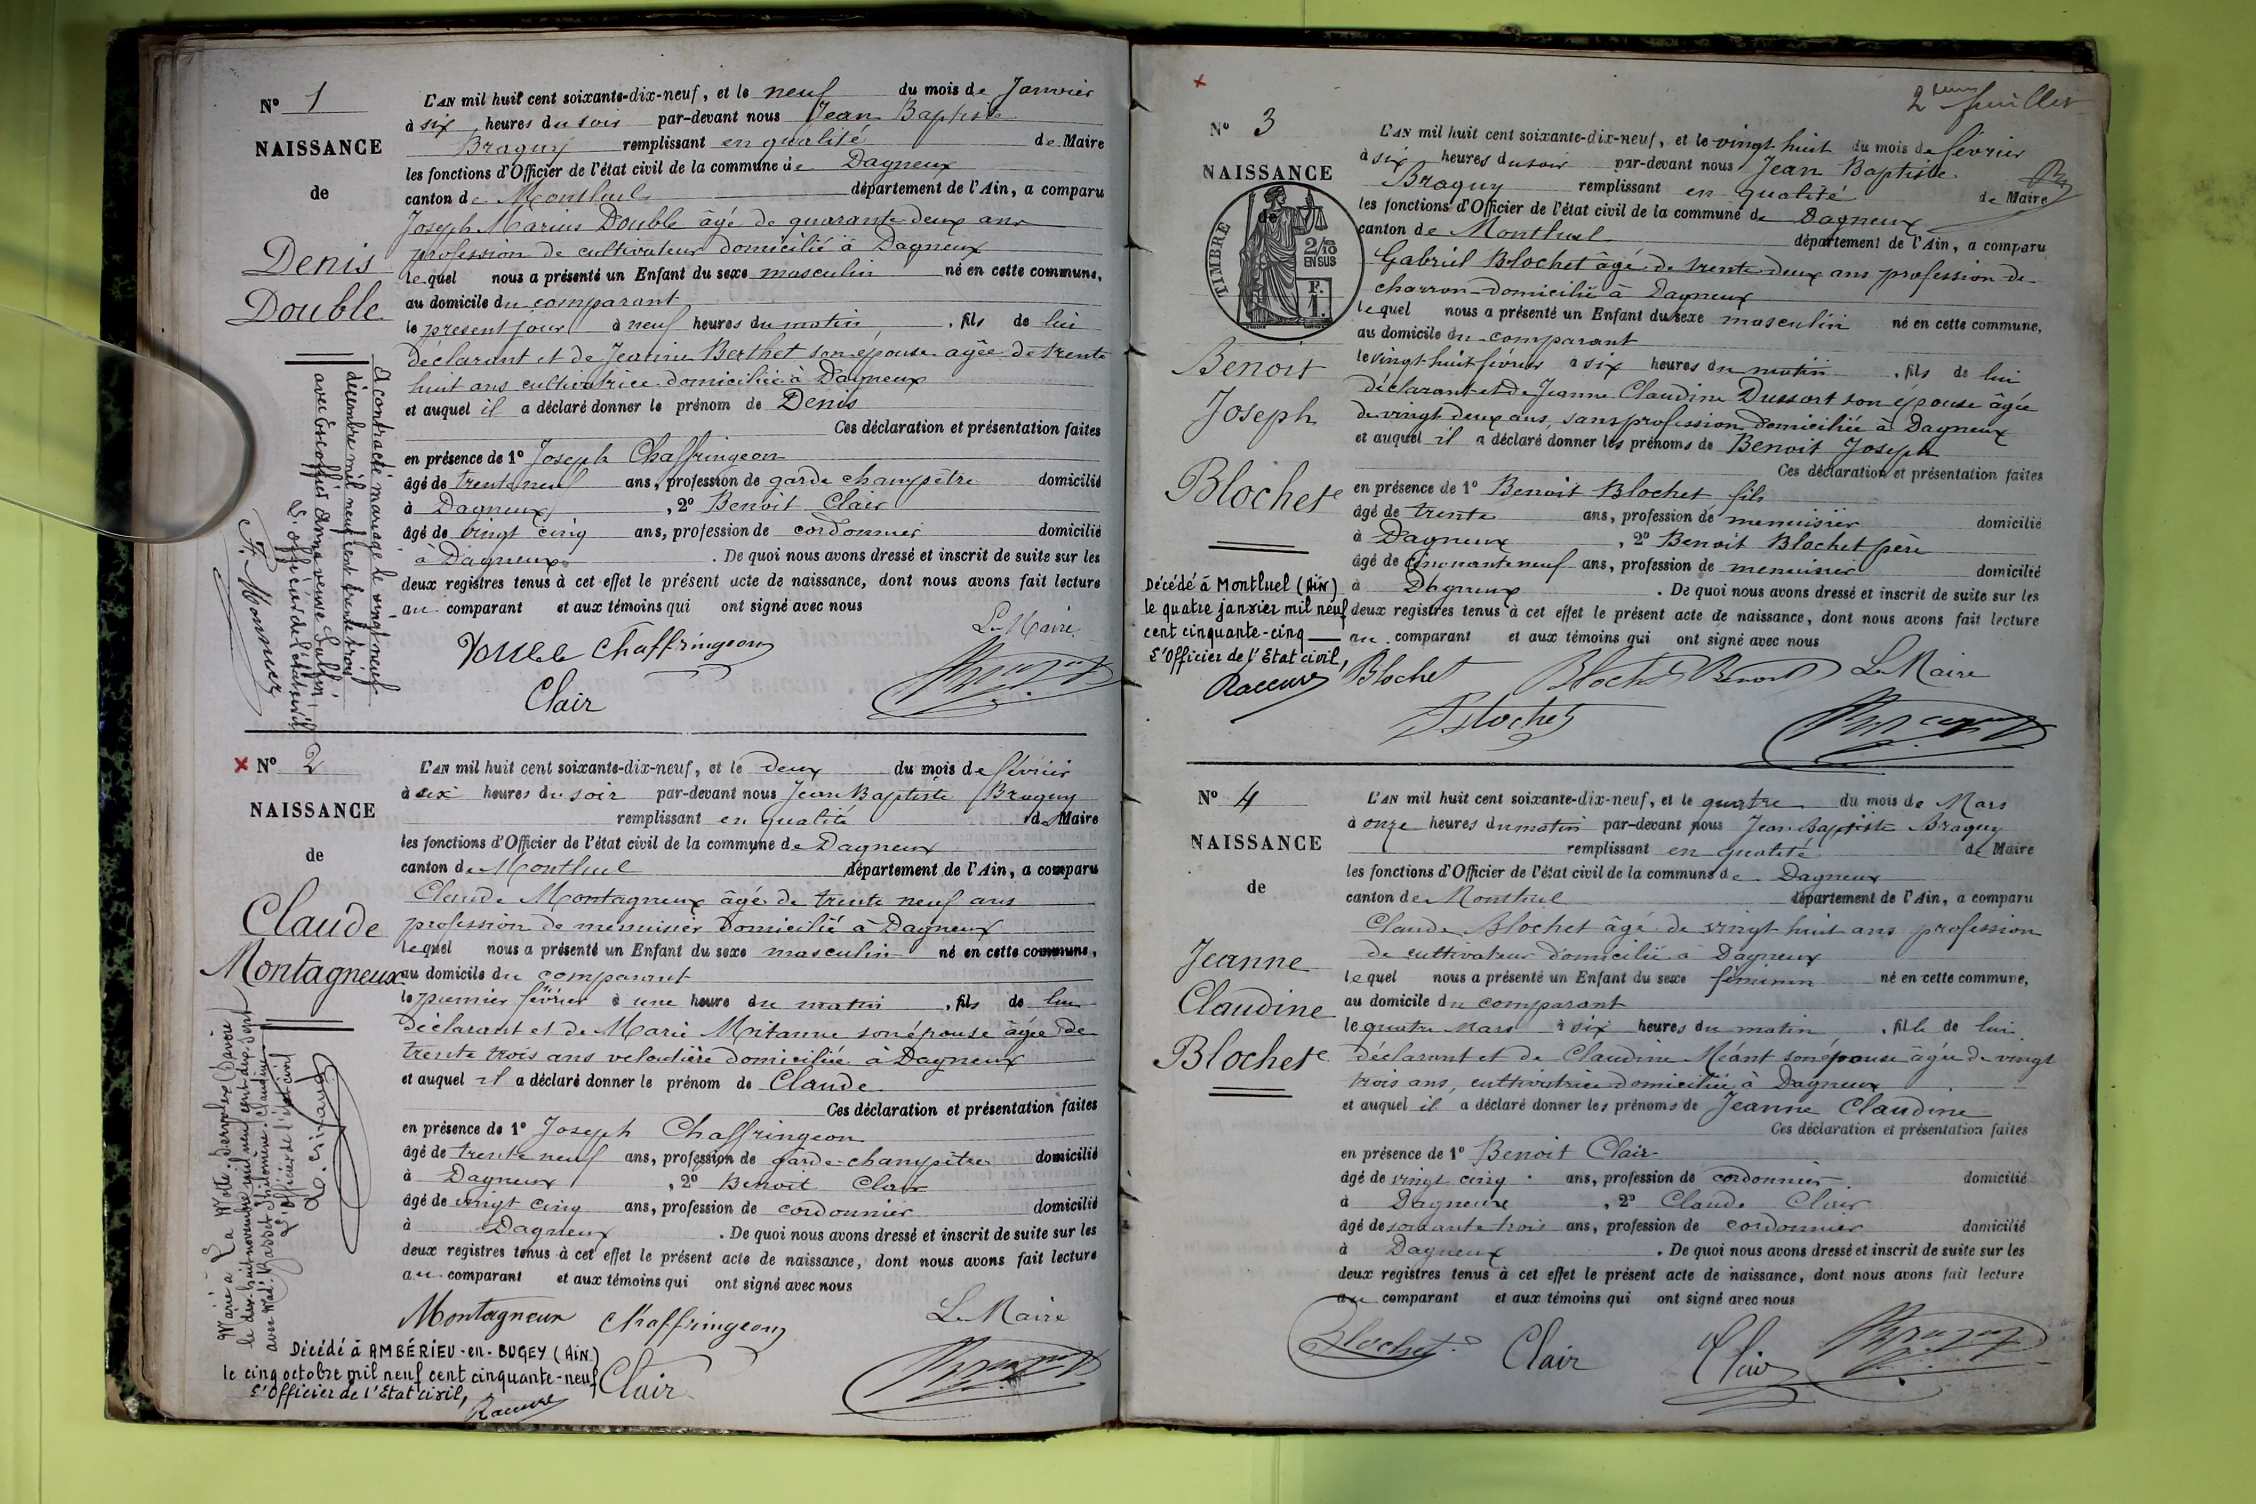 N° 1
NAISSANCE
de
Denis
Double
A contracté mariage le vingt neuf
décembre mil neuf cent trente trois
avec Escoffier Anna veuve
L'officier de l'état civil
F. Monnier
L'AN mil huit cent soixante-dix-neuf, et le neuf du mois de Janvier
à six heures du soir par-devant nous Jean Baptiste
Braguy remplissant en qualité de Maire
les fonctions d'Officier de l'état civil de la commune de Dagneux
canton de Montluel département de l'Ain, a comparu
Joseph Marius Double âgé de quarante deux ans
profession de cultivateur domicilié à Dagneux
lequel nous a présenté un Enfant du sexe masculin né en cette commune,
au domicile du comparant
le présent jour à neuf heures du matin, fils de lui
déclarant et de Jeanne Berthet son épouse agée de trente
huit ans cultivatrice domiciliée à Dagneux
et auquel il a déclaré donner le prénom de Denis
Ces déclaration et présentation faites
en présence de 1° Joseph Chaffringeon
âgé de trente neuf ans, profession de garde champêtre domicilié
à Dagneux, 2° Benoit Clair
âgé de vingt cinq ans, profession de cordonnier domicilié
à Dagneux. De quoi nous avons dressé et inscrit de suite sur les
deux registres tenus à cet effet le présent acte de naissance, dont nous avons fait lecture
au comparant et aux témoins qui ont signé avec nous
Le Maire
Double Chaffringeon
Clair
N° 2
NAISSANCE
de
Claude
Montagneux
Marié à La Motte Servolex (Savoie)
le dix huit novembre mil neuf cent dix sept
avec Philomène Claudine
L'Officier de l'état civil
L'AN mil huit cent soixante-dix-neuf, et le deux du mois de février
à six heures du soir par-devant nous Jean Baptiste Braguy
remplissant en qualité de Maire
les fonctions d'Officier de l'état civil de la commune de Dagneux
canton de Montluel département de l'Ain, a comparu
Claude Montagneux âgé de trente neuf ans
profession de menuisier domicilié à Dagneux
lequel nous a présenté un Enfant du sexe masculin né en cette commune,
au domicile du comparant
le premier février à une heure du matin, fils de lui
déclarant et de Marie Mitanne son épouse âgée de
trente trois ans veloutière domiciliée à Dagneux
et auquel il a déclaré donner le prénom de Claude
Ces déclaration et présentation faites
en présence de 1° Joseph Chaffringeon
âgé de trente neuf ans, profession de garde-champêtre domicilié
à Dagneux, 2° Benoit Clair
âgé de vingt cinq ans, profession de cordonnier domicilié
à Dagneux. De quoi nous avons dressé et inscrit de suite sur les
deux registres tenus à cet effet le présent acte de naissance, dont nous avons fait lecture
au comparant et aux témoins qui ont signé avec nous
Montagneux Chaffringeon Le Maire
Décédé à AMBÉRIEU-en-BUGEY (AiN)
le cinq octobre mil neuf cent cinquante-neuf
L'Officier de l'Etat civil,
Clair
2ème feuillet
N° 3
NAISSANCE
de
TIMBRE
2/10
EN SUS
F.
1.
Benoit
Joseph
Blochet
Décédé à Montluel (Ain)
le quatre janvier mil neuf
cent cinquante-cinq
L'Officier de l'Etat civil,
L'AN mil huit cent soixante-dix-neuf, et le vingt huit du mois de février
à six heures du soir par-devant nous Jean Baptiste
Braguy remplissant en qualité de Maire
les fonctions d'Officier de l'état civil de la commune de Dagneux
canton de Montluel département de l'Ain, a comparu
Gabriel Blochet âgé de trente deux ans profession de
charron domicilié à Dagneux
lequel nous a présenté un Enfant du sexe masculin né en cette commune,
au domicile du comparant
le vingt huit février à six heures du matin, fils de lui
déclarant et de Jeanne Claudine Dussort son épouse âgée
de vingt deux ans, sans profession domiciliée à Dagneux
et auquel il a déclaré donner les prénoms de Benoit Joseph
Ces déclaration et présentation faites
en présence de 1° Benoit Blochet fils
âgé de trente ans, profession de menuisier domicilié
à Dagneux, 2° Benoit Blochet père
âgé de cinquante neuf ans, profession de menuisier domicilié
à Dagneux. De quoi nous avons dressé et inscrit de suite sur les
deux registres tenus à cet effet le présent acte de naissance, dont nous avons fait lecture
au comparant et aux témoins qui ont signé avec nous
Blochet Blochet Benoit Le Maire
Blochet
N° 4
NAISSANCE
de
Jeanne
Claudine
Blochet
L'AN mil huit cent soixante-dix-neuf, et le quatre du mois de Mars
à onze heures du matin par-devant nous Jean Baptiste Braguy
remplissant en qualité de Maire
les fonctions d'Officier de l'état civil de la commune de Dagneux
canton de Montluel département de l'Ain, a comparu
Claude Blochet âgé de vingt huit ans profession
de cultivateur domicilié à Dagneux
lequel nous a présenté un Enfant du sexe féminin né en cette commune,
au domicile du comparant
le quatre Mars à six heures du matin, fille de lui
déclarant et de Claudine Méant son épouse âgée de vingt
trois ans, cultivatrice domiciliée à Dagneux
et auquel il a déclaré donner les prénoms de Jeanne Claudine
Ces déclaration et présentation faites
en présence de 1° Benoit Clair
âgé de vingt cinq ans, profession de cordonnier domicilié
à Dagneux, 2° Claude Clair
âgé de soixante trois ans, profession de cordonnier domicilié
à Dagneux. De quoi nous avons dressé et inscrit de suite sur les
deux registres tenus à cet effet le présent acte de naissance, dont nous avons fait lecture
au comparant et aux témoins qui ont signé avec nous
Blochet Clair Clair